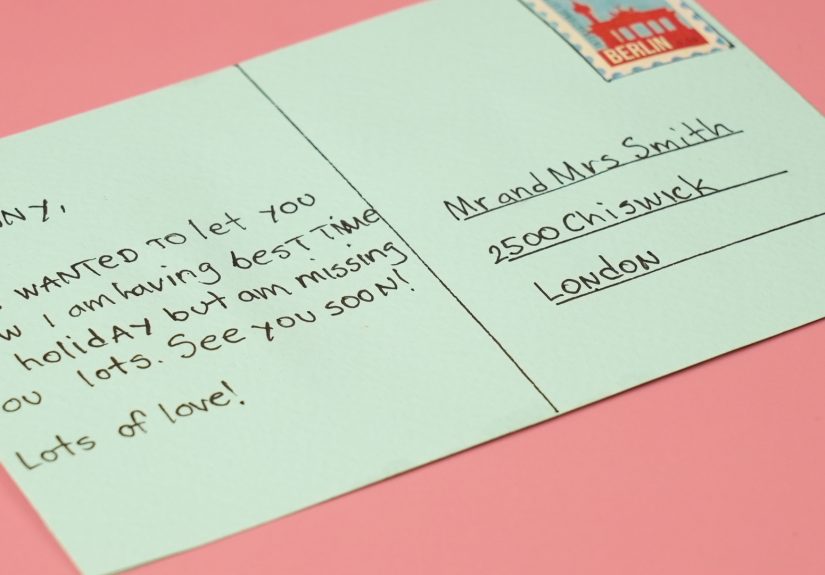 NY,
WANTED TO let YOU
w I am having best TIME
holidAY but am missing
ou lots. See you soon!
Lots of love!
BERLIN
Mr and Mrs Smith
2500 Chiswick
LONDON